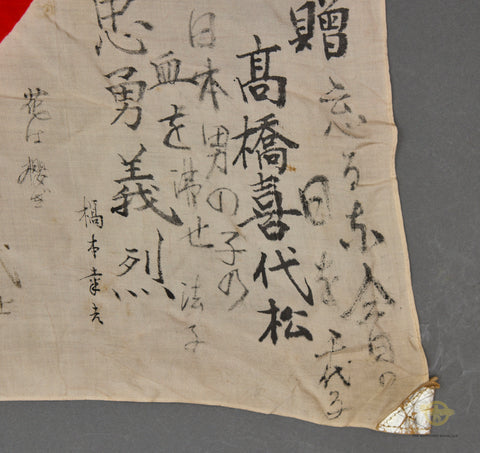 忘るな今日の
日を 千代子
贈
高橋喜代松
日本男の子の
血を沸せ 法子
忠勇義烈
橋本幸
花は櫻
士